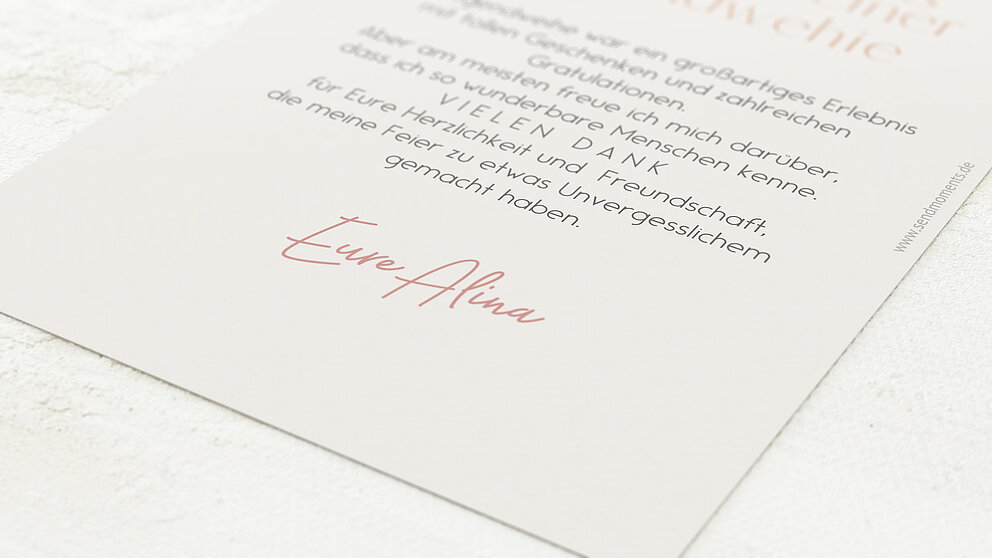 war ein großartiges Erlebnis
mit tollen Geschenken und zahlreichen
Gratulationen.
Aber am meisten freue ich mich darüber,
dass ich so wunderbare Menschen kenne.
VIELEN DANK
für Eure Herzlichkeit und Freundschaft,
die meine Feier zu etwas Unvergesslichem
gemacht haben.
Eure Alina
www.sendmoments.de